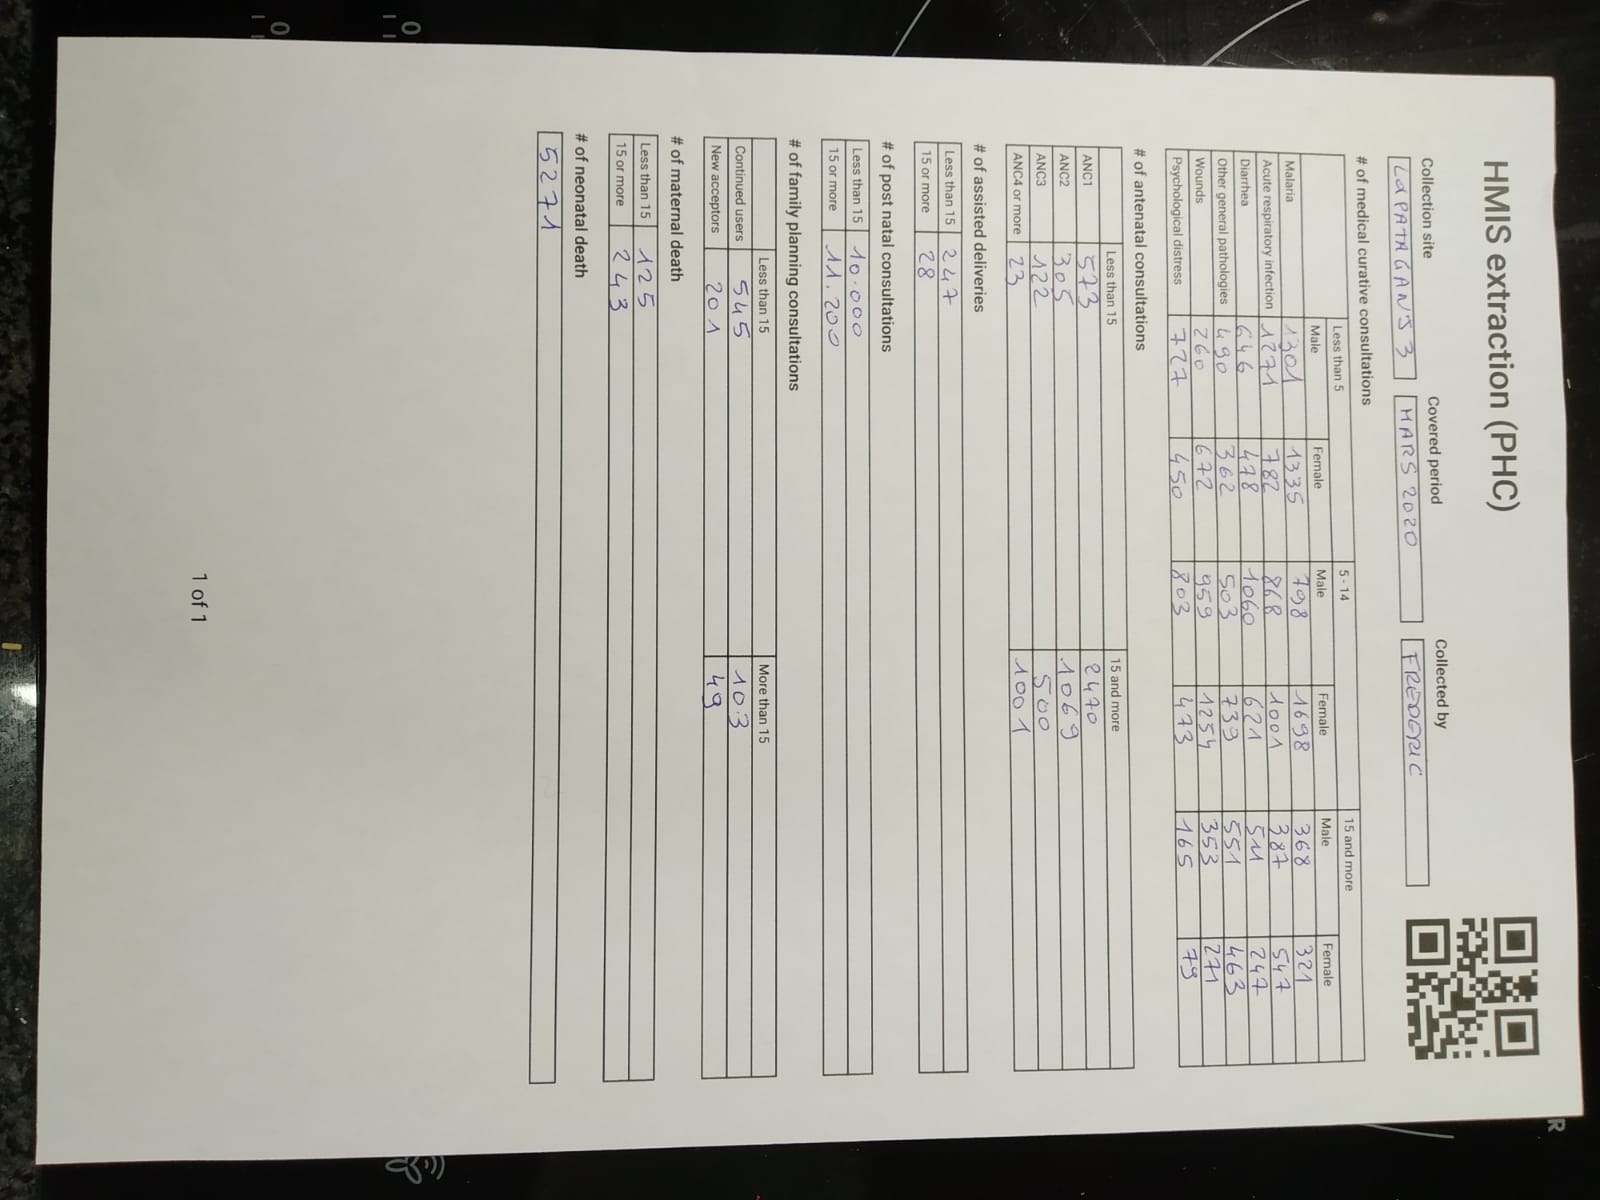 HMIS extraction (PHC)
Collection site Covered period Collected by
LAPATAGANS 3 MARS 2020 FREDERIC
# of medical curative consultations
Less than 5 5 - 14 15 and more
Male Female Male Female Male Female
Malaria 1301 1335 798 1698 368 321
Acute respiratory infection 1271 782 868 1001 387 547
Diarrhea 646 478 1060 621 511 247
Other general pathologies 490 362 503 739 551 463
Wounds 260 672 959 1254 353 271
Psychological distress 727 450 803 473 165 79
# of antenatal consultations
Less than 15 15 and more
ANC1 573 2470
ANC2 305 1069
ANC3 122 500
ANC4 or more 23 1001
# of assisted deliveries
Less than 15 247
15 or more 28
# of post natal consultations
Less than 15 10.000
15 or more 11.200
# of family planning consultations
Less than 15 More than 15
Continued users 545 10.3
New acceptors 201 49
# of maternal death
Less than 15 125
15 or more 243
# of neonatal death
5271
1 of 1